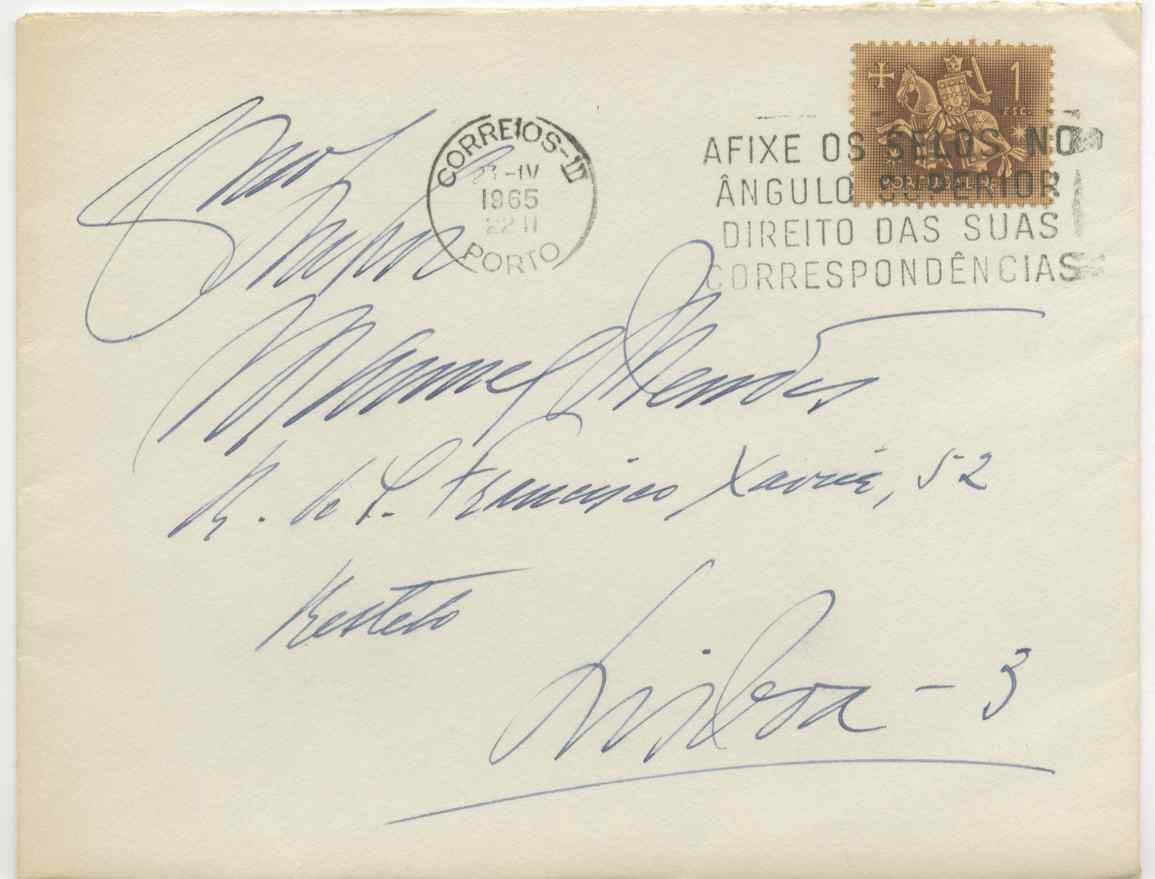 CORREIOS-III
23-IV
1965
22 H
PORTO
1
ESC.
PORTUGAL
AFIXE OS SELOS NO
ÂNGULO SUPERIOR
DIREITO DAS SUAS
CORRESPONDÊNCIAS
Exmo
Senhor
Manuel Mendes
R. de S. Francisco Xavier, 52
Restelo
Lisboa - 3